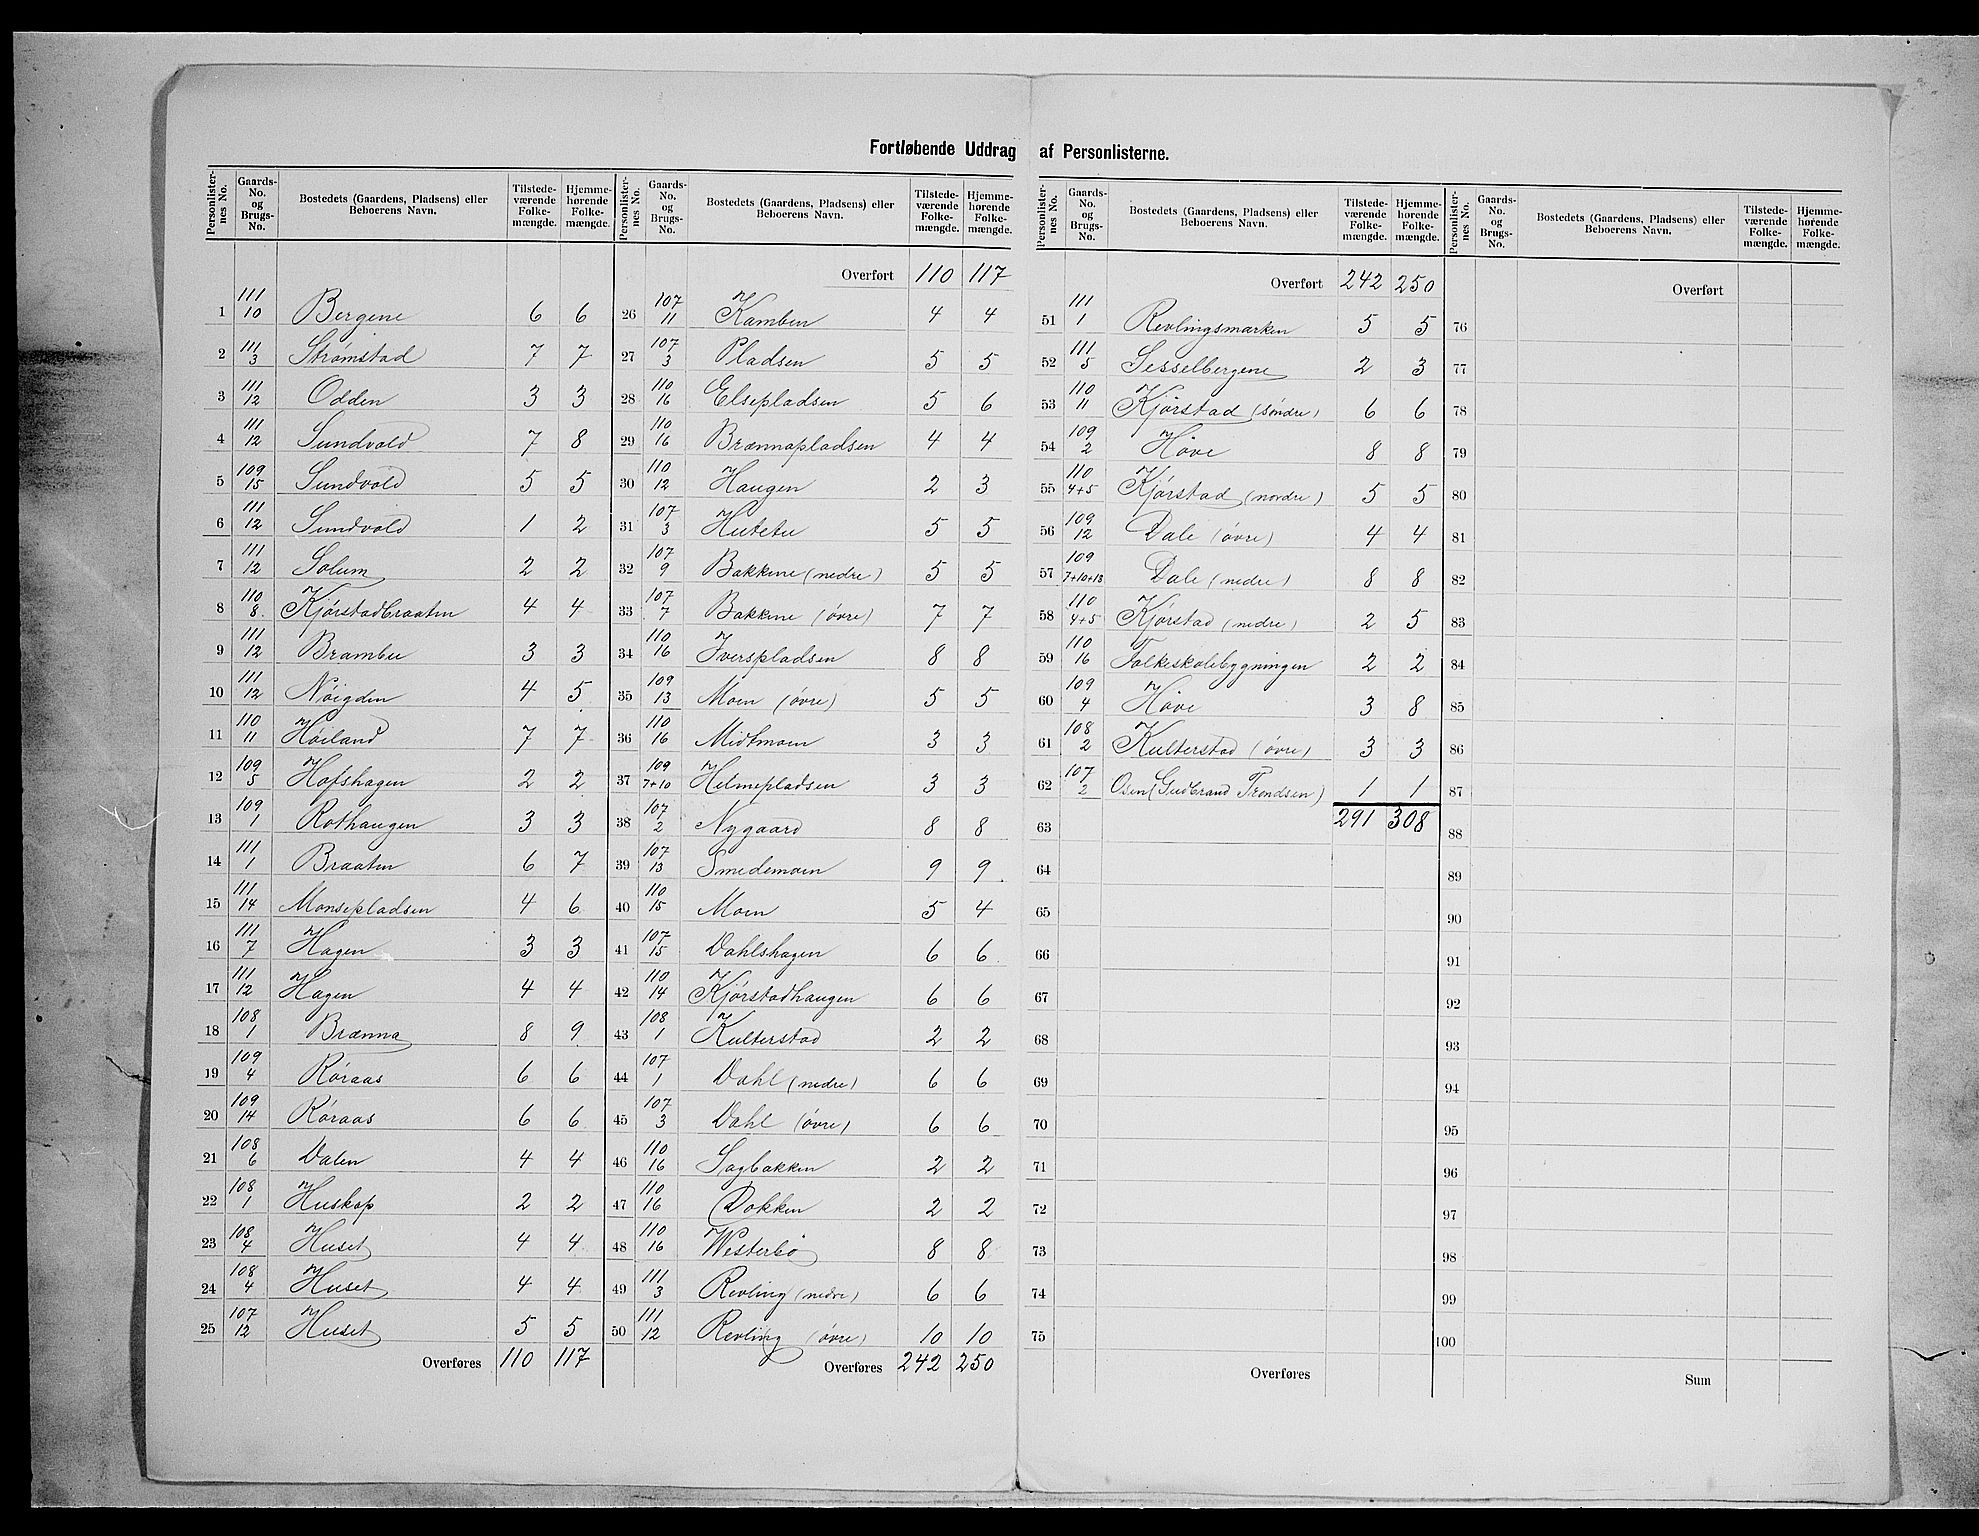 Fortløbende Uddrag af Personlisterne.
Personlisternes No. | Gaards-No. og Brugs-No. | Bostedets (Gaardens, Pladsens) eller Beboerens Navn. | Tilstedeværende Folkemængde. | Hjemmehørende Folkemængde.
1 111/10 Bergene 6 6
2 111/3 Strømstad 7 7
3 111/12 Odden 3 3
4 111/12 Sundvold 7 8
5 109/15 Sundvold 5 5
6 111/12 Sundvold 1 2
7 111/12 Solum 2 2
8 110/8 Kjørstadbraaten 4 4
9 111/12 Brambu 3 3
10 111/12 Nøigden 4 5
11 110/11 Høiland 7 7
12 109/5 Hofshagen 2 2
13 109/1 Rothaugen 3 3
14 111/1 Braaten 6 7
15 111/14 Monsepladsen 4 6
16 111/7 Hagen 3 3
17 111/12 Hagen 4 4
18 108/1 Brænna 8 9
19 109/4 Røraas 6 6
20 109/14 Røraas 6 6
21 108/6 Dalen 4 4
22 108/1 Huskop 2 2
23 108/4 Huset 4 4
24 108/4 Huset 4 4
25 107/12 Huset 5 5
Overføres 110 117
Personlisternes No. | Gaards-No. og Brugs-No. | Bostedets (Gaardens, Pladsens) eller Beboerens Navn. | Tilstedeværende Folkemængde. | Hjemmehørende Folkemængde.
Overført 110 117
26 107/11 Kamben 4 4
27 107/3 Pladsen 5 5
28 110/16 Elsepladsen 5 6
29 110/16 Brænnapladsen 4 4
30 110/12 Haugen 2 3
31 107/3 Hutetu 5 5
32 107/9 Bakkene (nedre) 5 5
33 107/7 Bakkene (øvre) 7 7
34 110/16 Iverspladsen 8 8
35 109/13 Moen (øvre) 5 5
36 110/16 Midtmoen 3 3
37 109/7+10 Helmepladsen 3 3
38 107/2 Nygaard 8 8
39 107/13 Smedemoen 9 9
40 110/15 Moen 5 4
41 107/15 Dahlshagen 6 6
42 110/14 Kjørstadhaugen 6 6
43 108/1 Kulterstad 2 2
44 107/1 Dahl (nedre) 6 6
45 107/3 Dahl (øvre) 6 6
46 110/16 Sagbakken 2 2
47 110/16 Dokken 2 2
48 110/16 Westerbø 8 8
49 111/3 Revling (nedre) 6 6
50 111/12 Revling (øvre) 10 10
Overføres 242 250
Personlisternes No. | Gaards-No. og Brugs-No. | Bostedets (Gaardens, Pladsens) eller Beboerens Navn. | Tilstedeværende Folkemængde. | Hjemmehørende Folkemængde.
Overført 242 250
51 111/1 Revlingsmarken 5 5
52 111/5 Sesselbergene 2 3
53 110/11 Kjørstad (søndre) 6 6
54 109/2 Høve 8 8
55 110/4+5 Kjørstad (nordre) 5 5
56 109/12 Dale (øvre) 4 4
57 109/7+10+18 Dale (nedre) 8 8
58 110/4+5 Kjørstad (nedre) 2 5
59 110/16 Folkeskolebygningen 2 2
60 109/4 Høve 3 8
61 108/2 Kulterstad (øvre) 3 3
62 107/2 Osen (Gudbrand Trondsen) 1 1
63 291 308
64
65
66
67
68
69
70
71
72
73
74
75
Overføres
Personlisternes No. | Gaards-No. og Brugs-No. | Bostedets (Gaardens, Pladsens) eller Beboerens Navn. | Tilstedeværende Folkemængde. | Hjemmehørende Folkemængde.
Overført
76
77
78
79
80
81
82
83
84
85
86
87
88
89
90
91
92
93
94
95
96
97
98
99
100
Sum